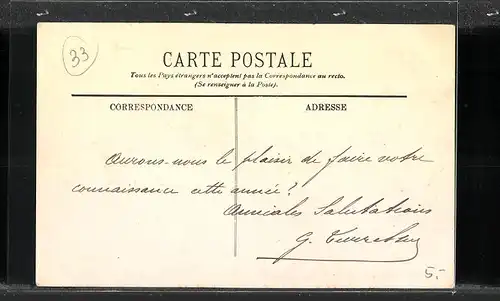 33
CARTE POSTALE
Tous les Pays étrangers n'acceptent pas la Correspondance au recto.
(Se renseigner à la Poste).
CORRESPONDANCE
ADRESSE
Aurons-nous le plaisir de faire votre
connaissance cette année?
Amicales Salutations
G.
5.-